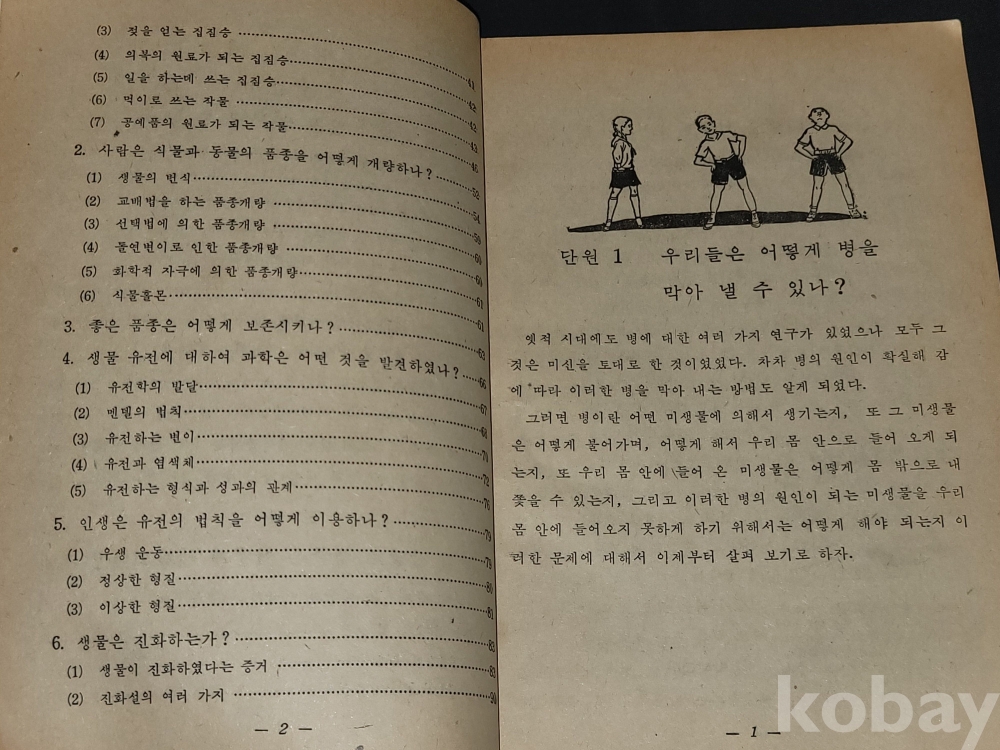 (3) 젖을 얻는 집짐승
(4) 의복의 원료가 되는 집짐승 41
(5) 일을 하는데 쓰는 집짐승 42
(6) 먹이로 쓰는 작물 43
(7) 공예품의 원료가 되는 작물 43
2. 사람은 식물과 동물의 품종을 어떻게 개량하나? 46
(1) 생물의 번식 53
(2) 교배법을 하는 품종개량 54
(3) 선택법에 의한 품종개량 59
(4) 돌연변이로 인한 품종개량 60
(5) 화학적 자극에 의한 품종개량 60
(6) 식물홀몬 61
3. 좋은 품종은 어떻게 보존시키나? 61
4. 생물 유전에 대하여 과학은 어떤 것을 발견하였나? 66
(1) 유전학의 발달 67
(2) 멘델의 법칙 68
(3) 유전하는 변이 70
(4) 유전과 염색체 72
(5) 유전하는 형식과 성과의 관계 76
5. 인생은 유전의 법칙을 어떻게 이용하나? 79
(1) 우생 운동 79
(2) 정상한 형질 80
(3) 이상한 형질 81
6. 생물은 진화하는가? 83
(1) 생물이 진화하였다는 증거 83
(2) 진화설의 여러 가지 90
— 2 —
단원 1 우리들은 어떻게 병을
막아 낼 수 있나?
옛적 시대에도 병에 대한 여러 가지 연구가 있었으나 모두 그
것은 미신을 토대로 한 것이었었다. 차차 병의 원인이 확실해 감
에 따라 이러한 병을 막아 내는 방법도 알게 되었다.
그러면 병이란 어떤 미생물에 의해서 생기는지, 또 그 미생물
은 어떻게 붙어가며, 어떻게 해서 우리 몸 안으로 들어 오게 되
는지, 또 우리 몸 안에 들어 온 미생물은 어떻게 몸 밖으로 내
쫓을 수 있는지, 그리고 이러한 병의 원인이 되는 미생물을 우리
몸 안에 들어오지 못하게 하기 위해서는 어떻게 해야 되는지 이
러한 문제에 대해서 이제부터 살펴 보기로 하자.
— 1 —
kobay